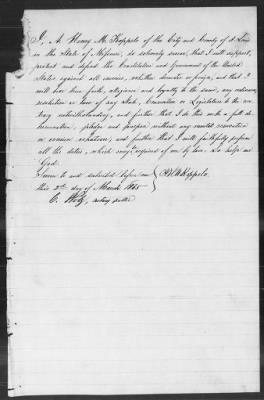 I, A. Henry M. Kappelo of the City and County of St Louis
in the State of Missouri, do solemnly swear, that I will support,
protect and defend the Constitution and Government of the United
States against all enemies, whether domestic or foreign, and that I
will bear true faith, allegiance and loyalty to the same, any ordinance,
resolution or law of any State, Convention or Legislature to the con-
trary notwithstanding, and further that I do this with a full de-
termination, pledge and purpose without any mental reservation
or evasion whatsoever, and further that I will faithfully perform
all the duties, which may be required of me by law. So help me
God.
Sworn to and subscribed before me
this 3d day of March 1865
acting